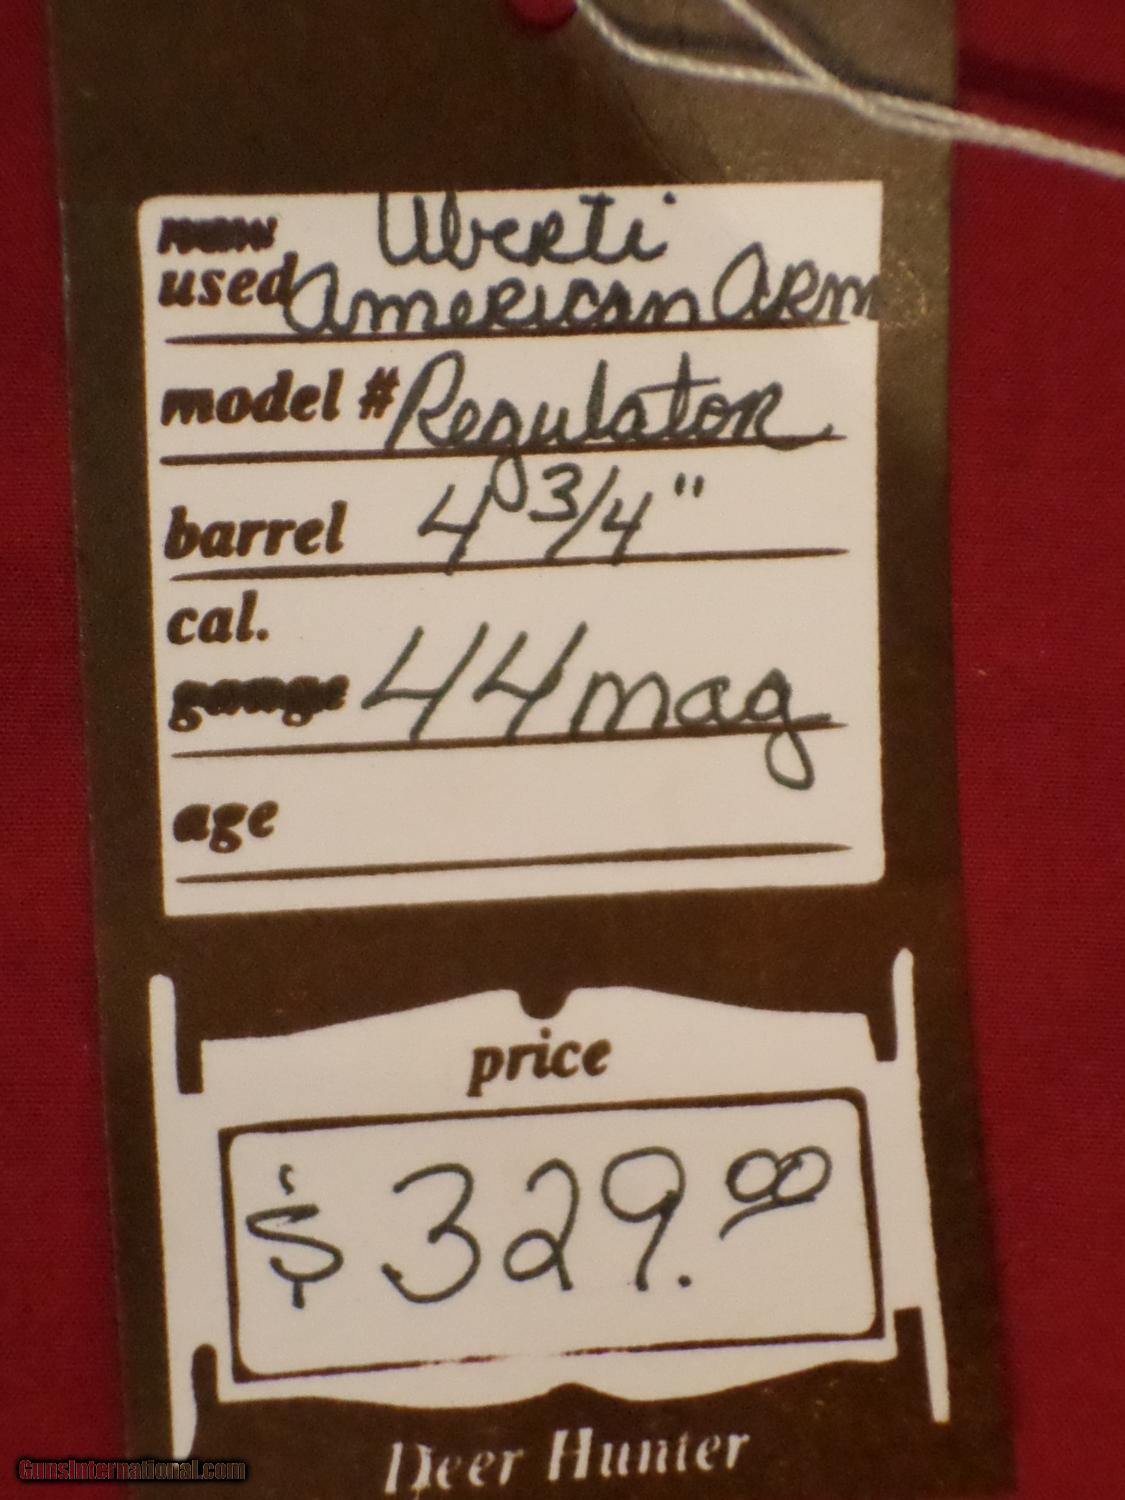 Uberti
used American Arm
model # Regulator
barrel 4 3/4"
cal.
gauge 44 mag
age
price
$ 329.00
Deer Hunter
GunsInternational.com